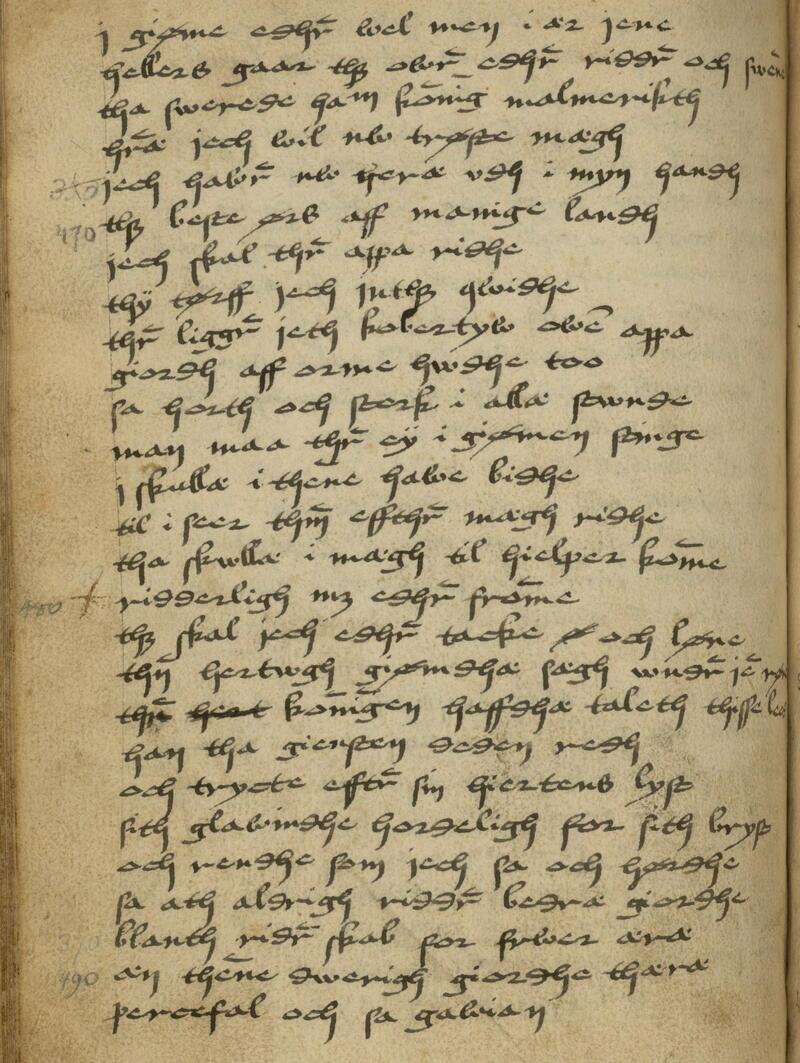 j giøme edhr̄ wel men i ær jene
hellers gaar thȝ owr̄ edhr̄ riddr̄ och swene
tha swerede ham kōnig malmerikth
hr̄æ jech wil nw trøste mægh
jech hawr̄ nw heræ vdh i myn handh
470 thȝ beste ørs aff manige landh
jech skal thr̄ appa ridhe
thÿ tørff jech inthȝ qwidhe
thr̄ liggr̄ jeth kobertyw owē appa
giordh aff orme hwdhe too
sa horth och sterk i allæ stwnde
man maa thr̄ eÿ i giømen stinge
j skullæ i thēne hawe bidhe
til i seer thm̄ effthr̄ mægh ridhe
tha skwllæ i mægh til hielper kōme
480 ridderligh mȝ edhr̄ frōme
thȝ skal jech edhr̄ tacke ø och løne
thn̄ hertwgh giømdhæ sægh wndr̄ jē
thn̄ hert kōnīgen haffdhæ taleth thisse
han tha giensten deden redh
och trycte efftr̄ sin hiertens lyst
sith glawindhe hordeligh for sith bryst
och rendhe som jech sa och hørdhe
sa ath aldrigh riddr̄ bedræ giordhe
blanth ridr̄ skab for frwer æræ
490 æn thēne dwerigh giordhe thæræ
percefal och sa gawian